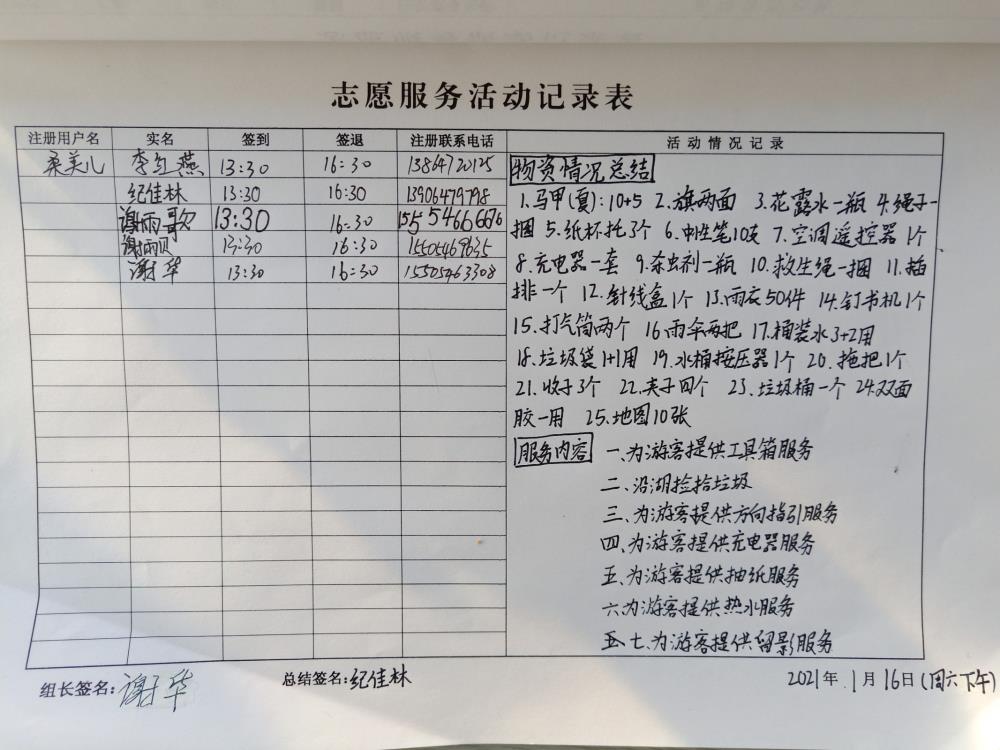 志愿服务活动记录表
注册用户名 实名 签到 签退 注册联系电话 活动情况记录
柔美儿 李红燕 13:30 16:30 13864720125
纪佳林 13:30 16:30 13906479798
谢雨歌 13:30 16:30 15554666676
谢丽贝 13:30 16:30 15505469635
谢华 13:30 16:30 15505463308
物资情况总结
1.马甲(夏):10+5 2.旗两面 3.花露水一瓶 4.绳子一
捆 5.纸杯托3个 6.中性笔10支 7.空调遥控器1个
8.充电器一套 9.杀虫剂一瓶 10.救生绳一捆 11.插
排一个 12.针线盒1个 13.雨衣50件 14.钉书机1个
15.打气筒两个 16.雨伞两把 17.桶装水3+2用
18.垃圾袋1+1用 19.水桶按压器1个 20.拖把1个
21.收子3个 22.夹子四个 23.垃圾桶一个 24.双面
胶一用 25.地图10张
服务内容 一、为游客提供工具箱服务
二、沿湖捡拾垃圾
三、为游客提供方向指引服务
四、为游客提供充电器服务
五、为游客提供抽纸服务
六为游客提供热水服务
七、为游客提供留影服务
组长签名:谢华 总结签名:纪佳林 2021年1月16日(周六下午)